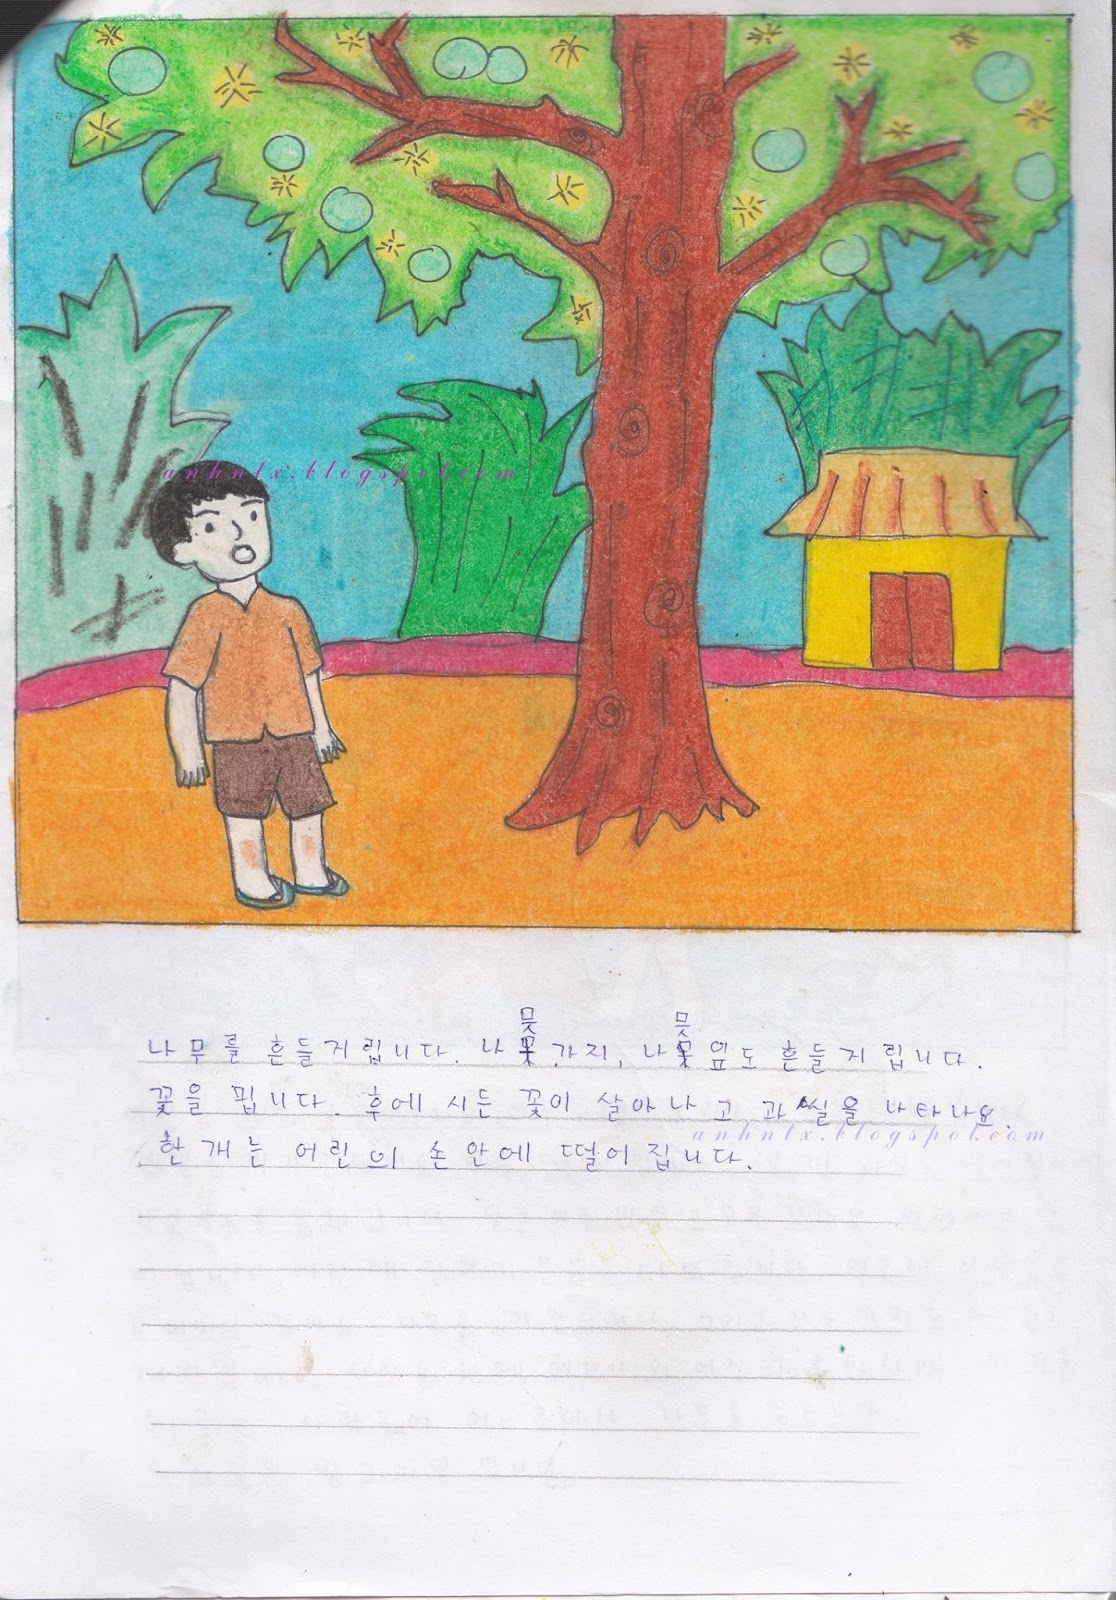 anhntx.blogspot.com
나무를 흔들거립니다. 나뭇가지, 나뭇잎도 흔들거립니다.
꽃을 핍니다. 후에 시든 꽃이 살아나고 과씰을 나타나요.
anhntx.blogspot.com
한 개는 어린의 손 안에 떨어집니다.